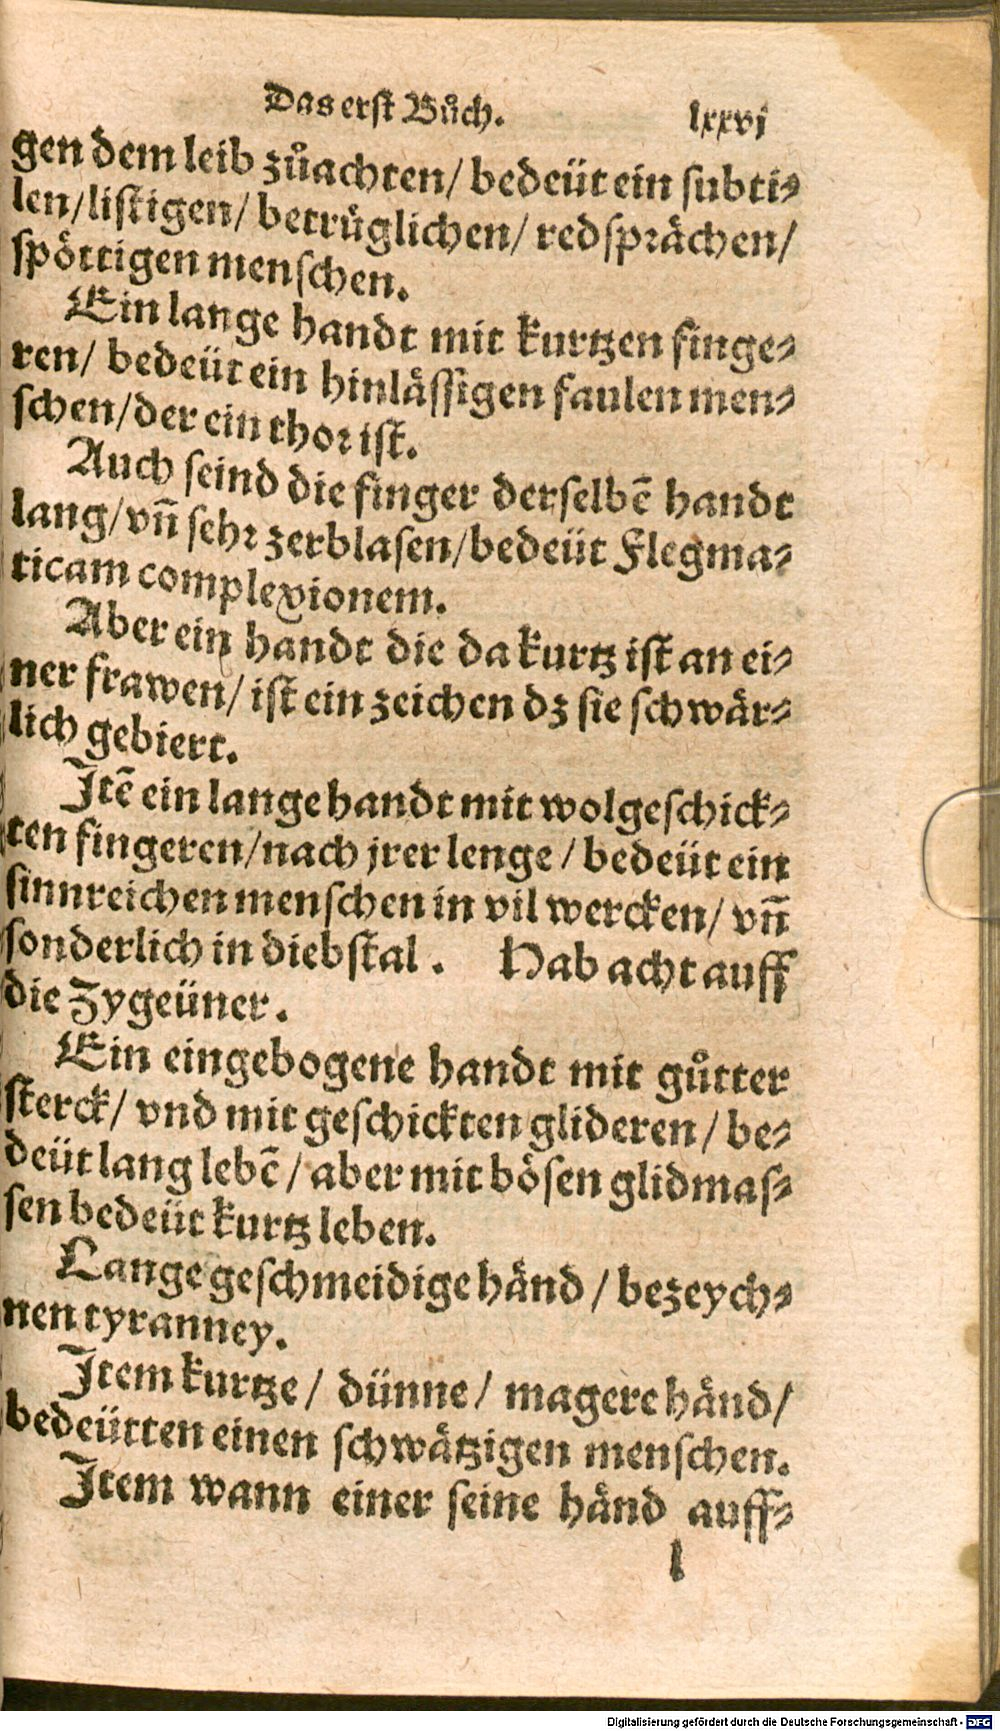 Das erst Bůch. lxxvj
gen dem leib zůachten/ bedeüt ein subti⸗
len/listigen/ betrůglichen/ redsprächen/
spöttigen menschen.
Ein lange handt mit kurtzen finge⸗
ren/ bedeüt ein hinlässigen faulen men⸗
schen/der ein thor ist.
Auch seind die finger derselbē handt
lang/vñ sehr zerblasen/bedeüt Flegma⸗
ticam complexionem.
Aber ein handt die da kurtz ist an ei⸗
ner frawen/ ist ein zeichen dz sie schwär⸗
lich gebiert.
Jtē ein lange handt mit wolgeschick⸗
ten fingeren/nach jrer lenge / bedeüt ein
sinnreichen menschen in vil wercken/ vñ
sonderlich in diebstal. Hab acht auff
die Zygeüner.
Ein eingebogene handt mit gůtter
sterck/ vnd mit geschickten glideren / be⸗
deüt lang lebē / aber mit bösen glidmas⸗
sen bedeüt kurtz leben.
Lange geschmeidige händ / bezeych⸗
nen tyranney.
Jtem kurtze/ dünne/ magere händ/
bedeütten einen schwätzigen menschen.
Jtem wann einer seine händ auff⸗
l
Digitalisierung gefördert durch die Deutsche Forschungsgemeinschaft - DFG